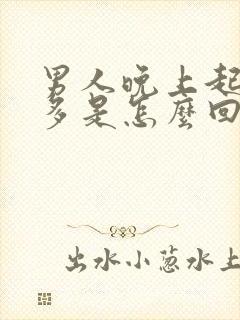 男人晚上起
多是怎麼回
出水小葱水上